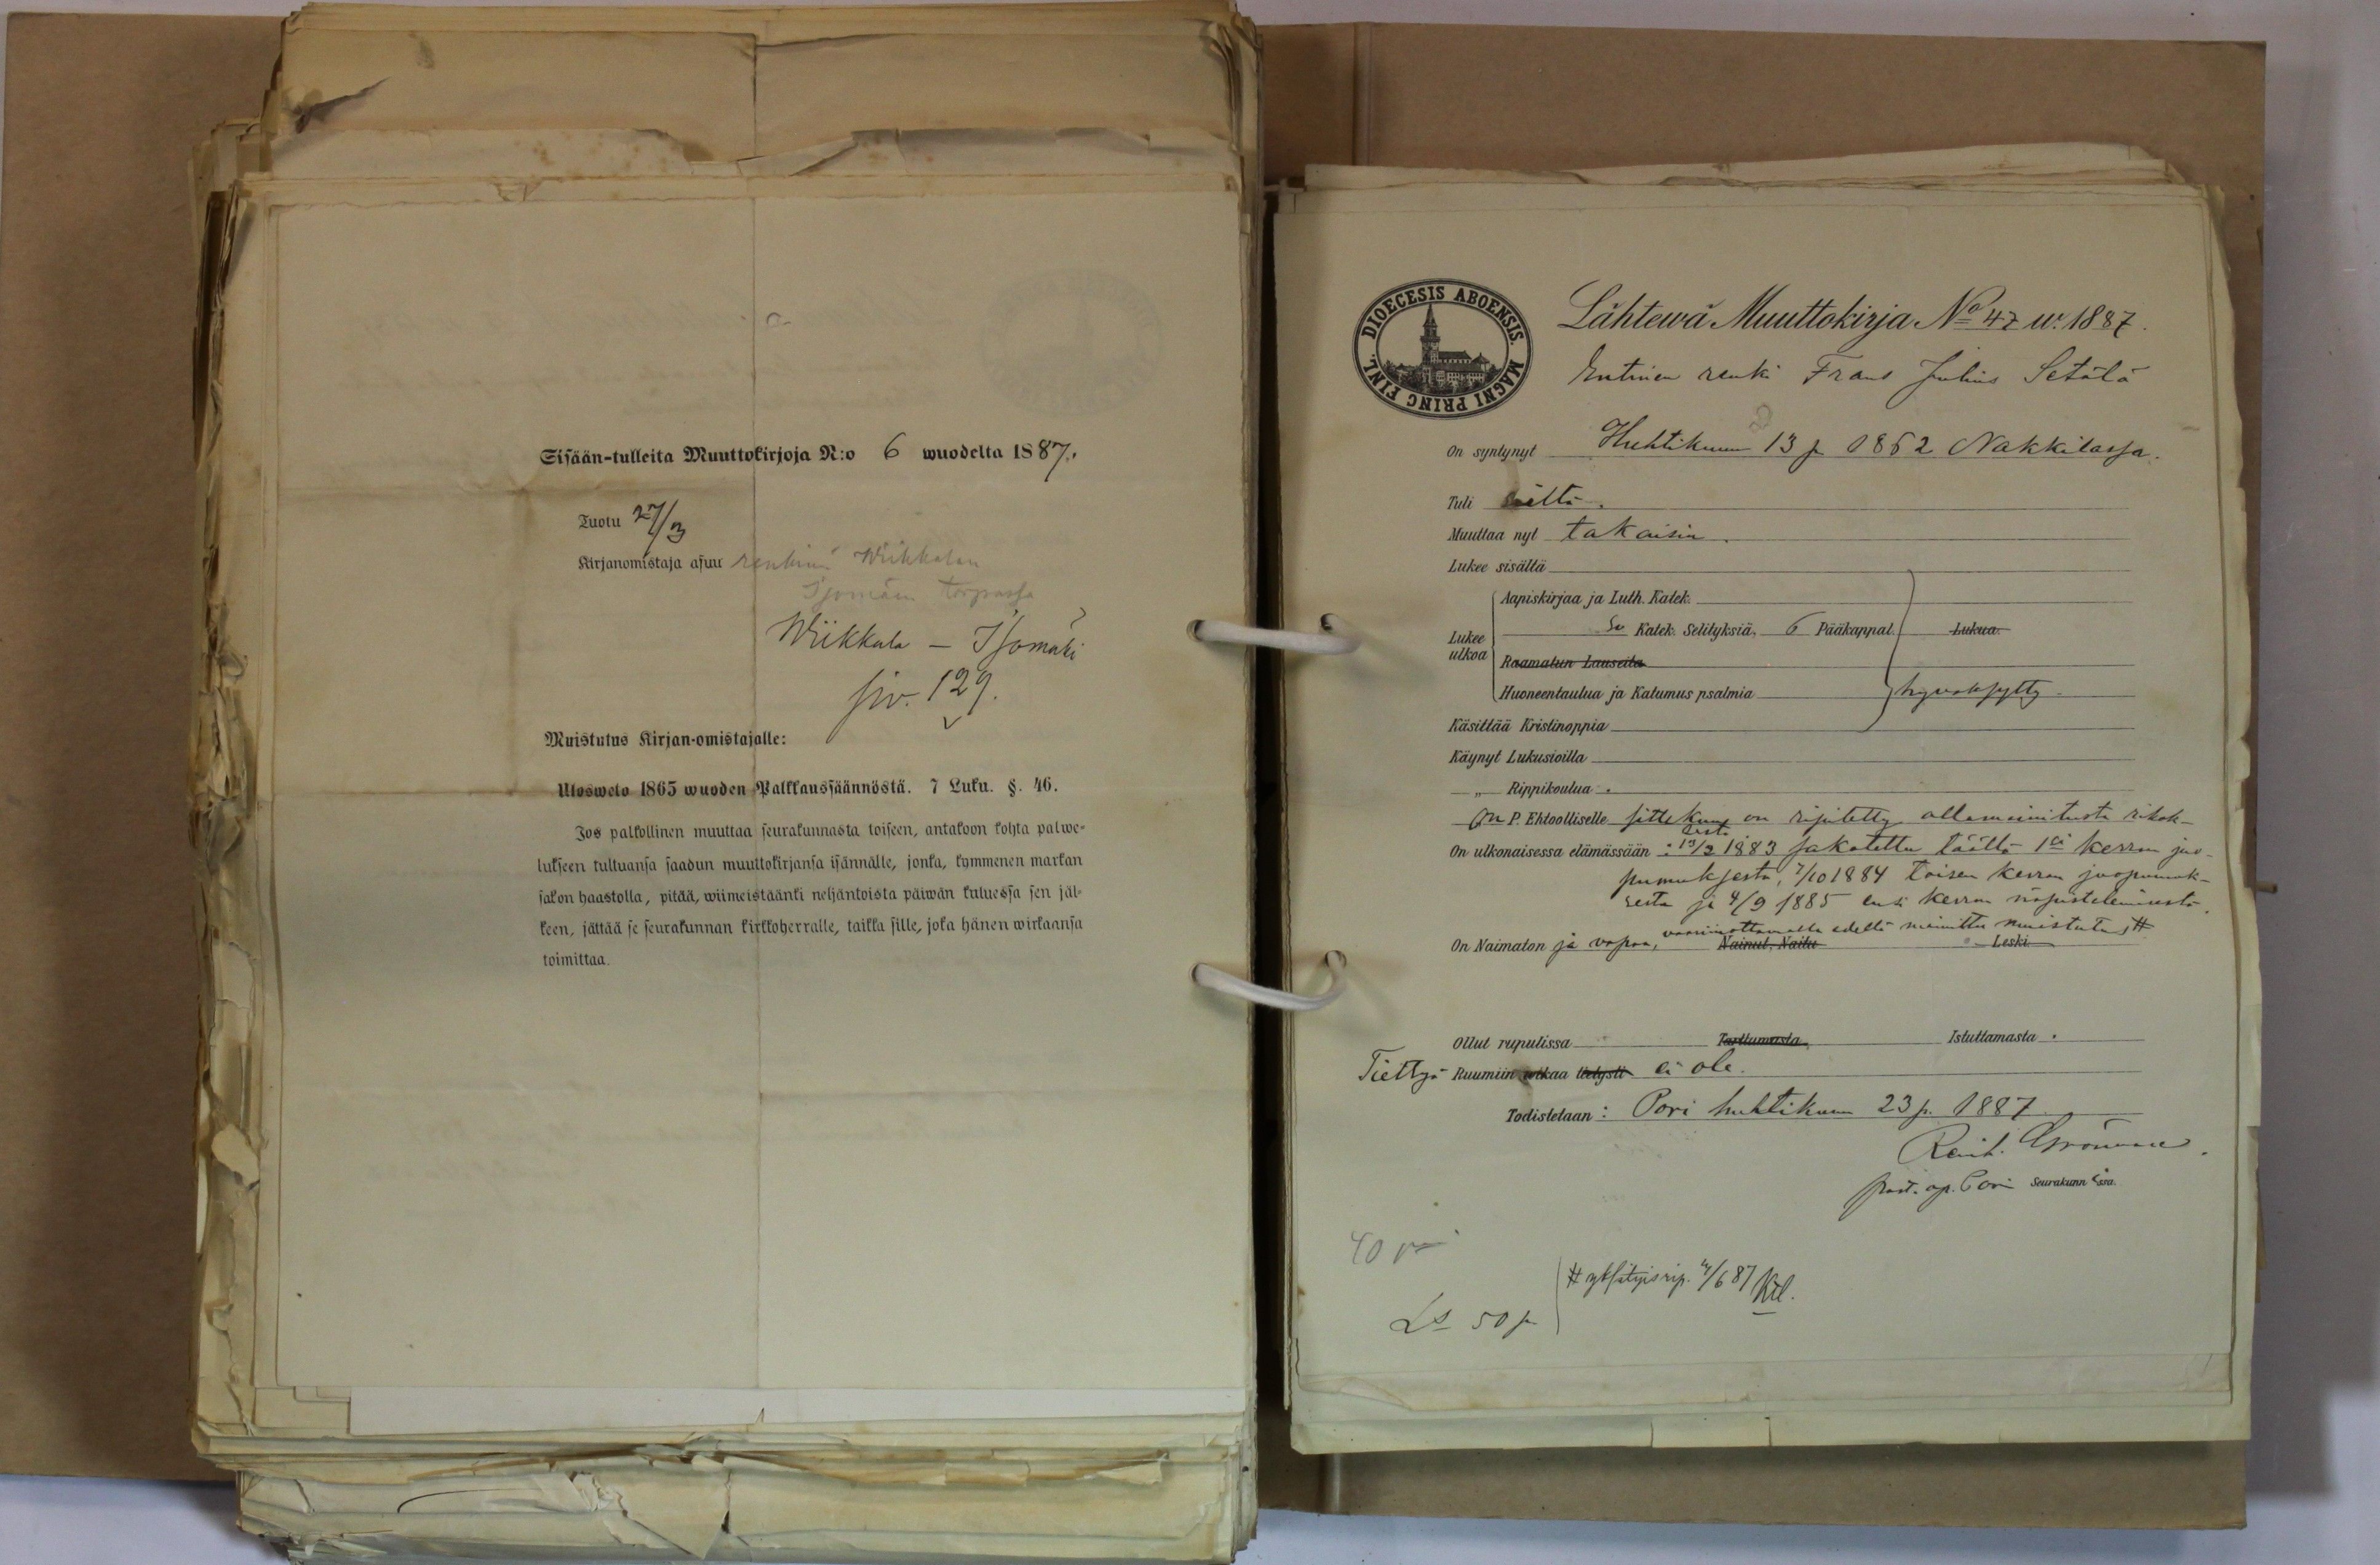 Sisään-tulleita Muuttokirjoja N:o 6 wuodelta 1887.
Tuotu 27/3
Kirjanomistaja asuu renkinä Wiikkalan
Isomäen torpassa
Wiikkala – Isomäki
siv. 129.
Muistutus Kirjan-omistajalle:
Uloswelo 1865 wuoden Palkkaussäännöstä. 7 Luku. §. 46.
Jos palkollinen muuttaa seurakunnasta toiseen, antakoon kohta palwe-
lukseen tultuansa saadun muuttokirjansa isännälle, jonka, kymmenen markan
sakon haastolla, pitää, wiimeistäänki neljäntoista päiwän kuluessa sen jäl-
keen, jättää se seurakunnan kirkkoherralle, taikka sille, joka hänen wirkaansa
toimittaa.
DIOECESIS ABOENSIS. MAGNI PRINC FINL.
Lähtewä Muuttokirja No 47 w. 1887.
Entinen renki Frans Julius Setälä
On syntynyt Huhtikuun 13 p. 1862 Nakkilassa.
Tuli sieltä.
Muuttaa nyt takaisin.
Lukee sisältä
Aapiskirjaa ja Luth. Katek.
Lukee ulkoa
Sv Katek. Selityksiä, 6 Pääkappal. Lukua.
Raamatun Lauseita
Huoneentaulua ja Katumus psalmia hyväksytty.
Käsittää Kristinoppia
Käynyt Lukusioilla
„ Rippikoulua
On P. Ehtoolliselle sittekun on ripitetty allamainitusta rikok-
sesta
On ulkonaisessa elämässään: 13/2 1883 sakotettu täällä 1si kerran juo-
pumuksesta, 7/10 1884 toisen kerran juopumuk-
sesta ja 4/9 1885 ensi kerran näpistelemisestä.
On Naimaton ja vapaa, vaariinottamalla edellä mainittu muistutus #
Nainut, Naitu Leski
Ollut rupulissa Tarttumasta Istuttamasta
Tiettyä Ruumiin wikaa tietysti ei ole.
Todistetaan: Pori huhtikuun 23 p. 1887
Reinh. Grönvall.
past. ap. Pori Seurakunnassa.
40 p
# yksityisrip. 4/6 87 Ktl.
Ls 50 p